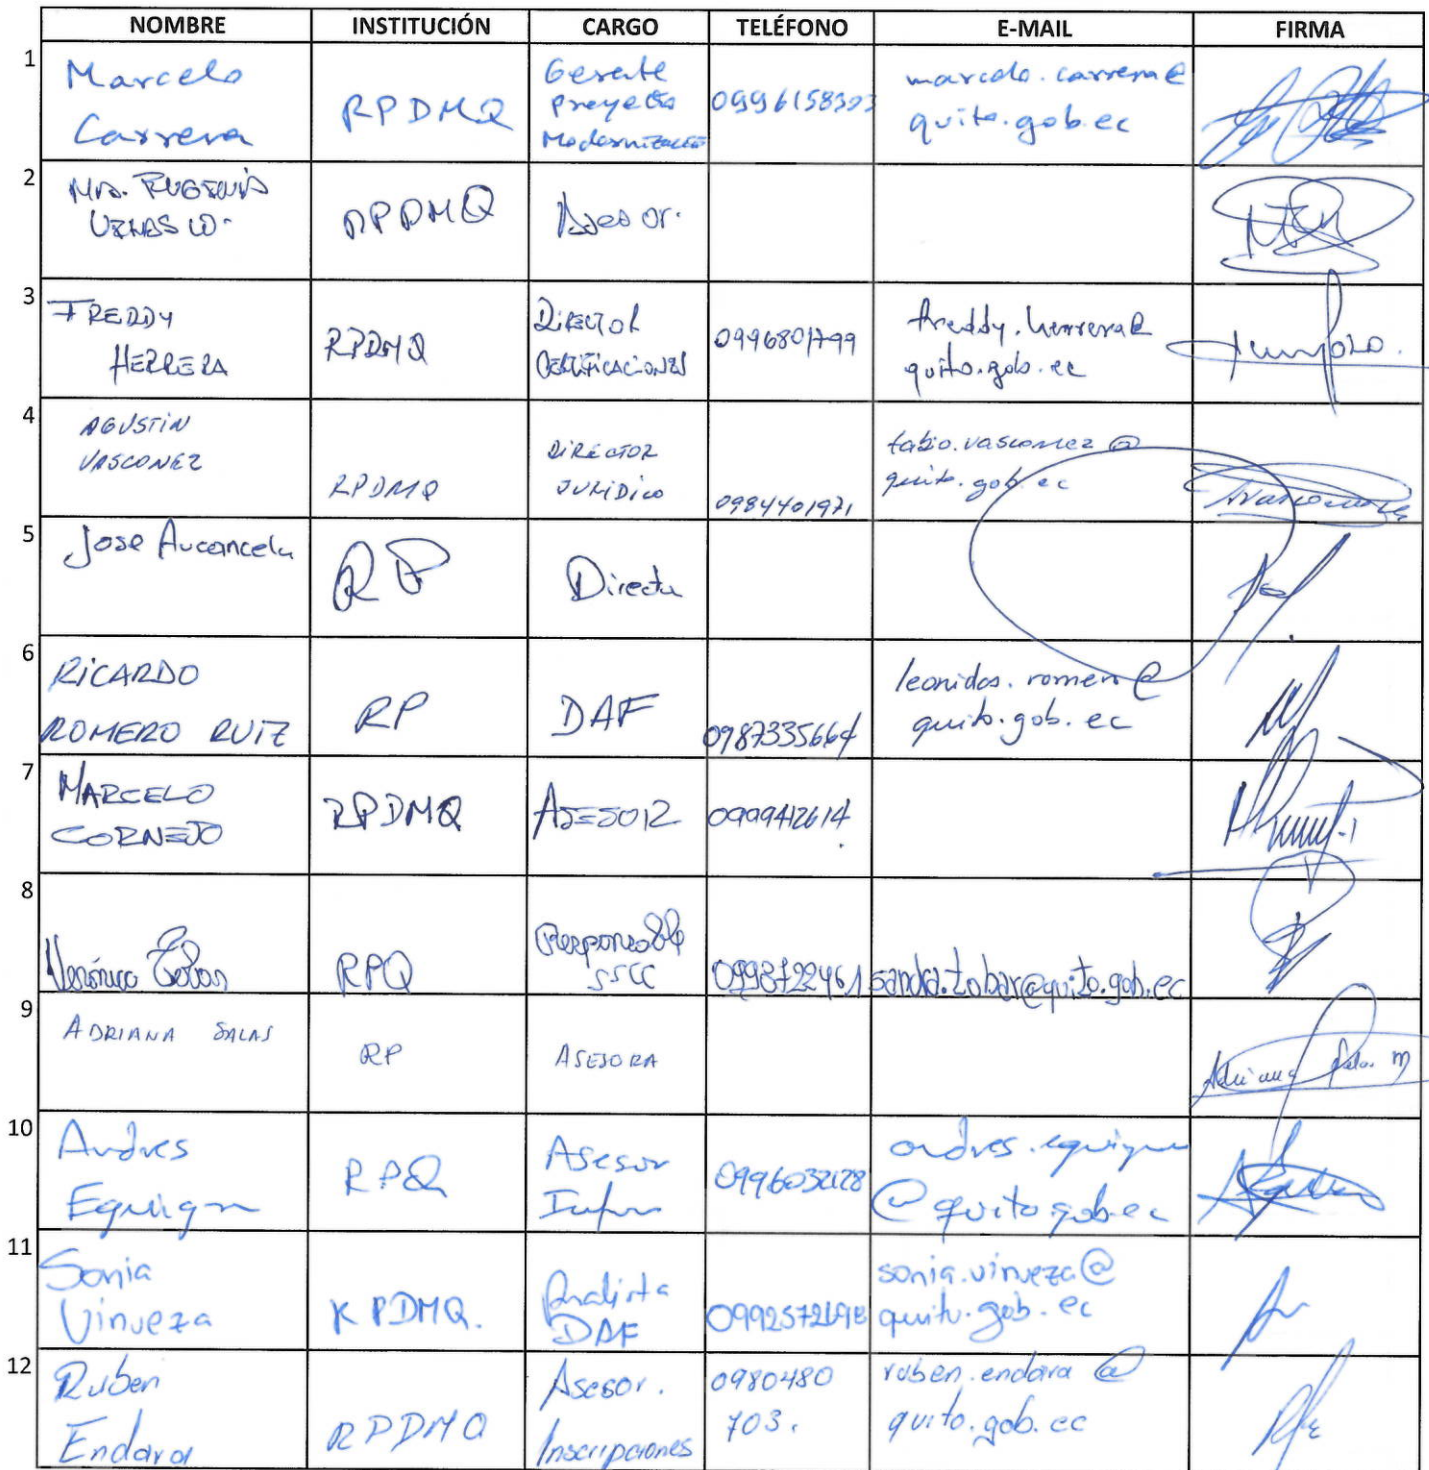 NOMBRE INSTITUCIÓN CARGO TELÉFONO E-MAIL FIRMA
1
Marcelo
Carrera
RPDMQ
Gerente
proyecto
marcelo.carrera@
quito.gob.ec
2
RPDMQ
Asesor.
3
FREDDY
HERRERA
RPDMQ
DIRECTOR
CERTIFICACIONES
0996801799
freddy.herrera@
quito.gob.ec
4
AGUSTIN
VASCONEZ
RPDMQ
DIRECTOR
JURIDICO
0984401971
fabio.vasconez@
quito.gob.ec
5
Jose Aucancela
RP
6
RICARDO
ROMERO RUIZ
RP
DAF
0987335664
quito.gob.ec
7
MARCELO
CORNEJO
RPDMQ
ASESOR
0999412614
8
Verónica Tobar
RPQ
Responsable
SSCC
0998722461
sandra.tobar@quito.gob.ec
9
ADRIANA SALAS
RP
ASESORA
10
Andres
RPQ
Asesor
@quito.gob.ec
11
Sonia
Vinueza
RPDMQ.
Analista
DAF
sonia.vinueza@
quito.gob.ec
12
Ruben
Endara
RPDMQ
Asesor.
Inscripciones
0980480
703.
ruben.endara@
quito.gob.ec